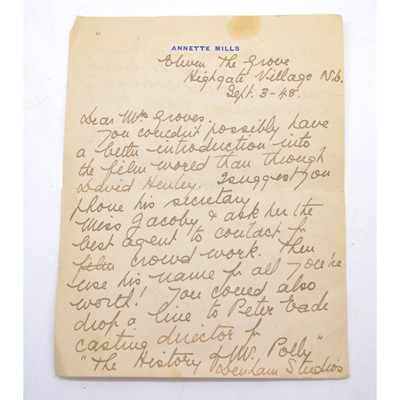 ANNETTE MILLS
The Grove
Highgate Village N.6.
Sept. 3-48.
Dear Mrs Groves.
You couldn't possibly have
a better introduction into
the film world than through
David Henley. I suggest you
phone his secretary
Miss Jacoby & ask her the
best agent to contact for
film crowd work. Then
use his name for all you're
worth! You could also
drop a line to Peter
casting director for
"The History of Mr. Polly"
Denham Studios